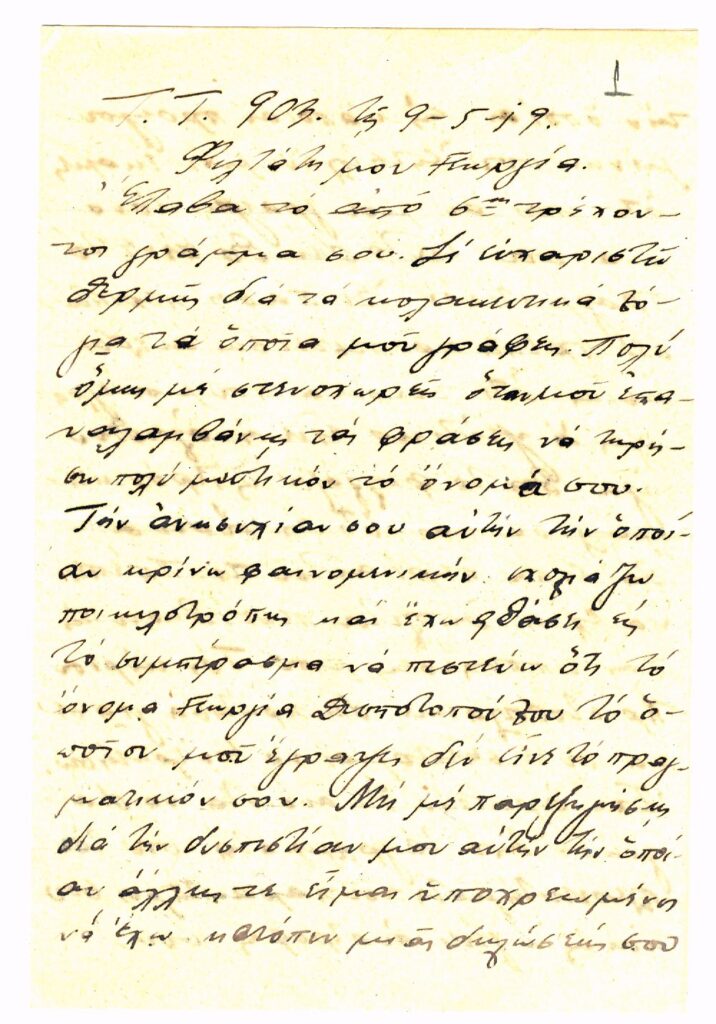 1
Τ. Τ. 903. τῇ 9-5-49.
Φιλτάτη μου Γεωργία.
Ἔλαβα τό ἀπό 6ης τρέχον-
τος γράμμα σου. Σέ εὐχαριστῶ
θερμῶς διά τά κολακευτικά λό-
για τά ὁποῖα μοῦ γράφεις. Πολύ
ὅμως μέ στενοχωρεῖς ὅταν μοῦ ἐπα-
ναλαμβάνεις τάς φράσεις νά τηρή-
σω πολύ μυστικόν τό ὄνομά σου.
Τήν ἀνησυχίαν σου αὐτήν τήν ὁποί-
αν κρίνω φαινομενικήν σχολιάζω
ποικιλοτρόπως καί ἔχω φθάσει εἰς
τό συμπέρασμα νά πιστεύω ὅτι τό
ὄνομα Γεωργία Δεσποτοπούλου τό ὁ-
ποῖον μοῦ ἔγραψες δέν εἶνε τό πραγ-
ματικόν σου. Μή μέ παρεξηγήσεις
διά τήν δυσπιστίαν μου αὐτήν τήν ὁποί-
αν ἄλλως τε εἶμαι ὑποχρεωμένος
νά ἔχω κατόπιν μιᾶς δηλώσεώς σου